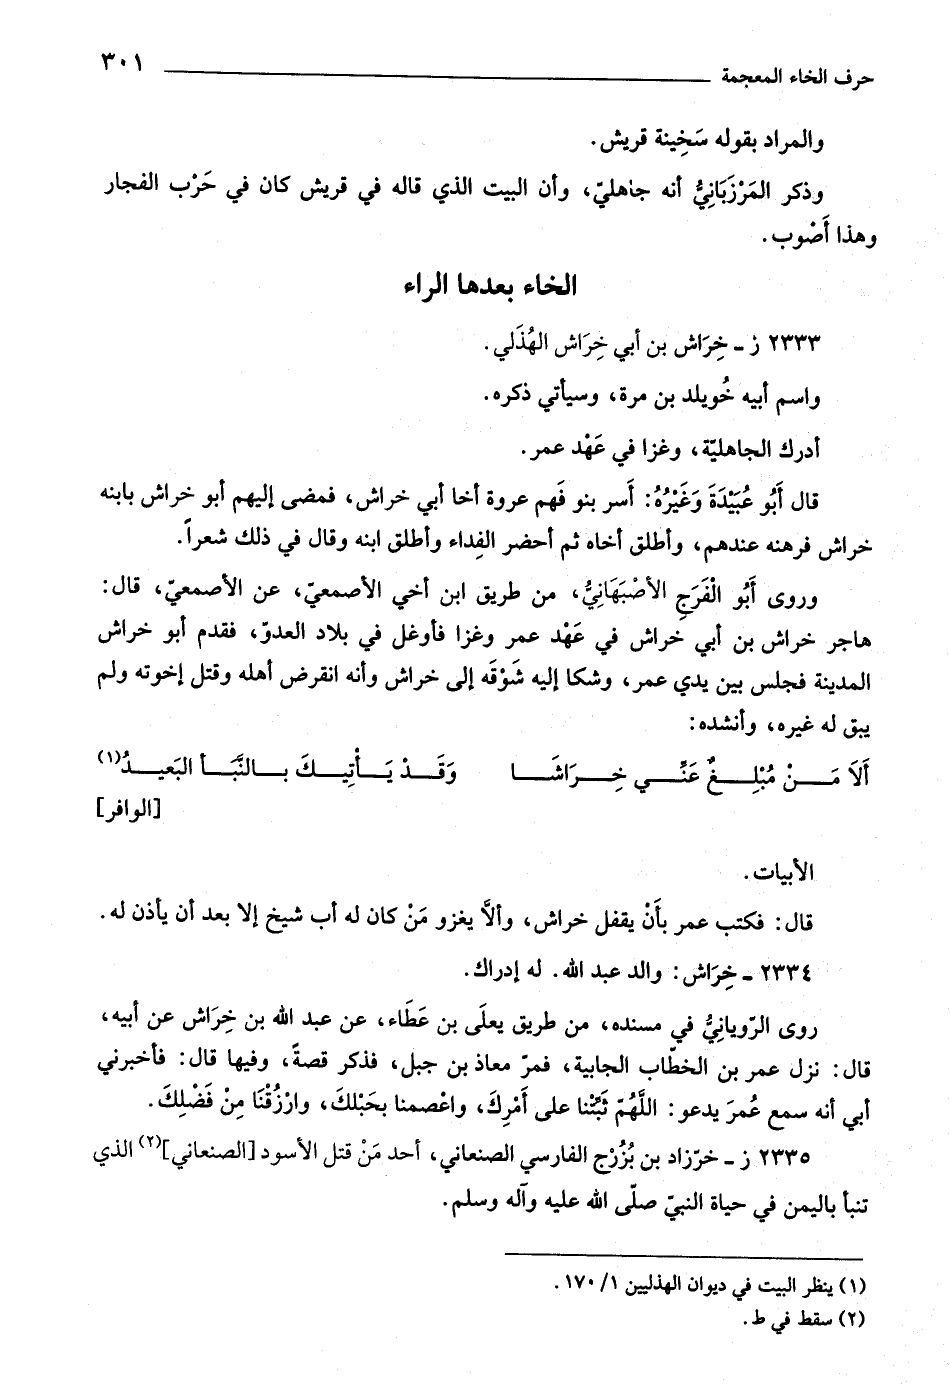 حرف الخاء المعجمة ٣٠١
والمراد بقوله سَخِينة قريش.
وذكر المَرْزَبَانِيُّ أنه جاهليّ، وأن البيت الذي قاله في قريش كان في حَرْب الفجار
وهذا أَصْوب.
الخاء بعدها الراء
٢٣٣٣ ز ـ خِرَاش بن أبي خِرَاش الهُذَلي.
واسم أبيه خُويلد بن مرة، وسيأتي ذكره.
أدرك الجاهليّة، وغزا في عَهْد عمر.
قال أَبُو عُبَيْدَةَ وَغَيْرُهُ: أَسر بنو فَهم عروة أخا أبي خراش، فمضى إليهم أبو خراش بابنه
خراش فرهنه عندهم، وأطلق أخاه ثم أحضر الفِداء وأطلق ابنه وقال في ذلك شعراً.
وروى أَبُو الْفَرَجِ الأصْبَهَانِيُّ، من طريق ابن أخي الأصمعيّ، عن الأصمعيّ، قال:
هاجر خراش بن أبي خراش في عَهْد عمر وغزا فأوغل في بلاد العدوّ، فقدم أبو خراش
المدينة فجلس بين يدي عمر، وشكا إليه شَوْقَه إلى خراش وأنه انقرض أهله وقتل إخوته ولم
يبق له غيره، وأنشده:
أَلاَ مَنْ مُبْلِغٌ عَنِّي خِرَاشَا وَقَدْ يَأْتِيكَ بالنَّبَأ البَعيدُ(١)
[الوافر]
الأبيات.
قال: فكتب عمر بأَنْ يقفل خراش، وألاَّ يغزو مَنْ كان له أب شيخ إلا بعد أن يأذن له.
٢٣٣٤ ـ خِرَاش: والد عبد الله. له إدراك.
روى الرّويانِيُّ في مسنده، من طريق يعلَى بن عَطَاء، عن عبد الله بن خِرَاش عن أبيه،
قال: نزل عمر بن الخطّاب الجابية، فمرّ معاذ بن جبل، فذكر قصةً، وفيها قال: فأخبرني
أبي أنه سمع عُمرَ يدعو: اللَّهُمّ ثَبِّتْنا على أَمْرِكَ، واعْصمنا بحَبْلكَ، وارْزُقْنَا مِنْ فَضْلِكَ.
٢٣٣٥ ز ـ خرّزاد بن بُزُرْج الفارسي الصنعاني، أحد مَنْ قتل الأسود [الصنعاني](٢) الذي
تنبأ باليمن في حياة النبيّ صلّى الله عليه وآله وسلم.
(١) ينظر البيت في ديوان الهذليين ١/ ١٧٠.
(٢) سقط في ط.